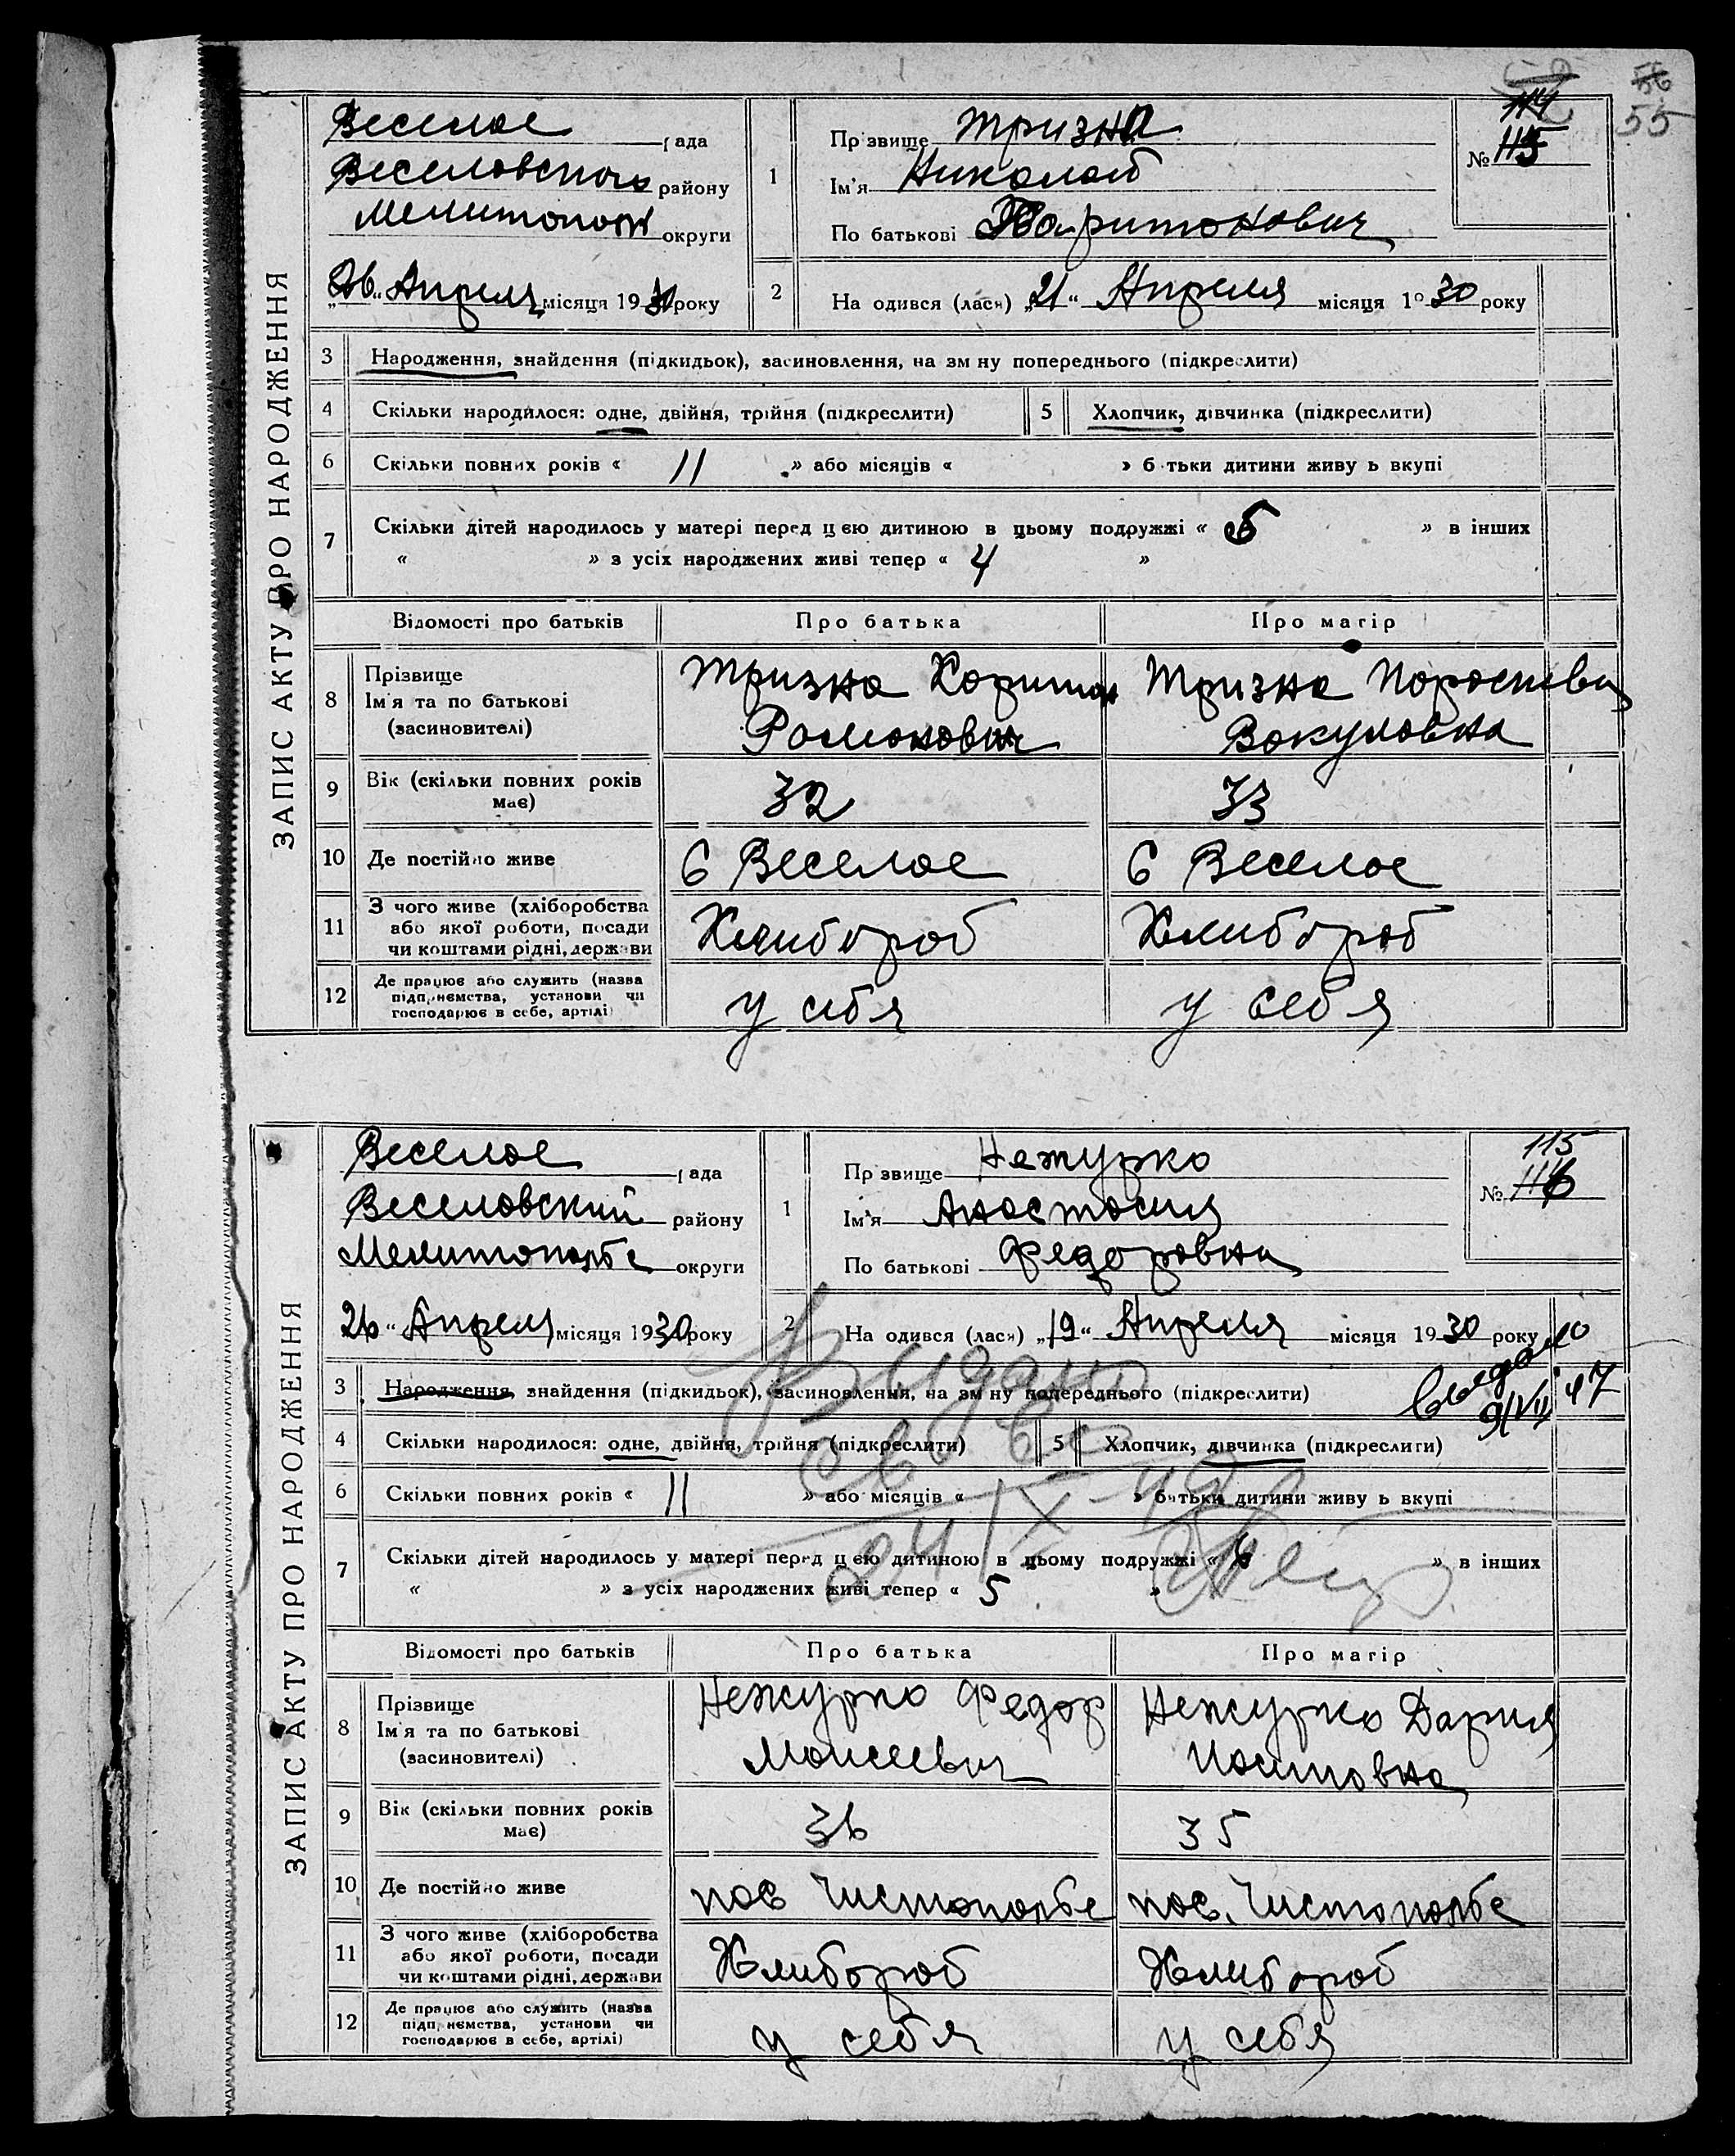 56
55
ЗАПИС АКТУ ПРО НАРОДЖЕННЯ
Веселое рада
Веселовского району
Мелитополь округи
„26“ Апреля місяця 1930 року
1
Прізвище Тризна
Ім'я Николай
По батькові Харитонович
114
№ 115
2
На одився (лася) „21“ Апреля місяця 1930 року
3 Народження, знайдення (підкидьок), засиновлення, на зм ну попереднього (підкреслити)
4 Скільки народилося: одне, двійня, трійня (підкреслити) 5 Хлопчик, дівчинка (підкреслити)
6 Скільки повних років « 11 » або місяців « » б тьки дитини живу ь вкупі
7 Скільки дітей народилось у матері перед цією дитиною в цьому подружжі « 5 » в інших
« » з усіх народжених живі тепер « 4 »
Відомості про батьків Про батька Про матір
8 Прізвище
Ім'я та по батькові
(засиновителі)
Тризна Харитон
Романович
Тризна Пораскева
Вакуловна
9 Вік (скільки повних років має) 32 33
10 Де постійно живе С Веселое С Веселое
11 З чого живе (хліборобства
або якої роботи, посади
чи коштами рідні, держави
Хлибороб Хлибороб
12 Де працює або служить (назва
підприємства, установи чи
господарює в себе, артілі)
у себя у себя
ЗАПИС АКТУ ПРО НАРОДЖЕННЯ
Веселое рада
Веселовский району
Мелитополь округи
26 “ Апреля місяця 1930 року
1
Пр звище Нежурко
Ім'я Анастасия
По батькові Федоровна
115
№ 116
2
На одився (лася) „19“ Апреля місяця 1930 року
выдано
9/VII 47
3 Народження, знайдення (підкидьок), засиновлення, на зм ну попереднього (підкреслити)
Выдано
4 Скільки народилося: одне, двійня, трійня (підкреслити) 5 Хлопчик, дівчинка (підкреслити)
св во
6 Скільки повних років « 11 » або місяців « » батьки дитини живу ь вкупі
24/X-
7 Скільки дітей народилось у матері перед цією дитиною в цьому подружжі « » в інших
« » з усіх народжених живі тепер « 5 »
Відомості про батьків Про батька Про матір
8 Прізвище
Ім'я та по батькові
(засиновителі)
Нежурко Федор
Моисеевич
Нежурко Дария
9 Вік (скільки повних років має) 36 35
10 Де постійно живе пос Чистополье пос. Чистополье
11 З чого живе (хліборобства
або якої роботи, посади
чи коштами рідні, держави
Хлибороб Хлибороб
12 Де працює або служить (назва
підпр нємства, установи чи
господарює в себе, артілі)
у себя у себя